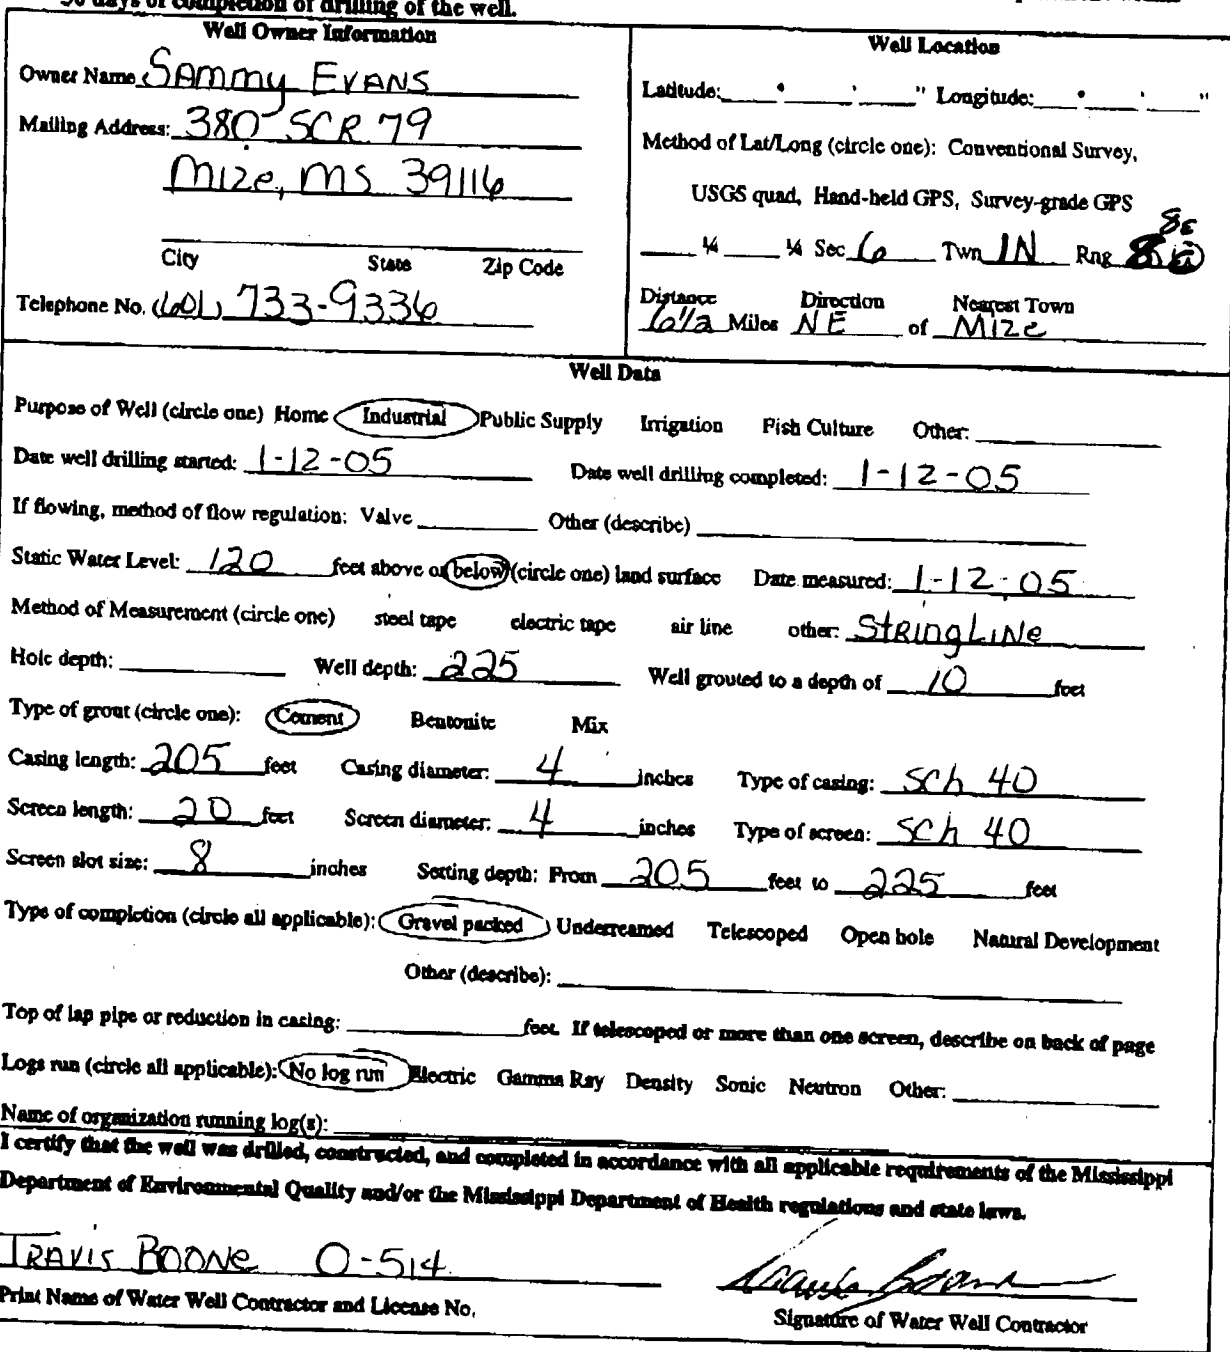 30 days of completion of drilling of the well.
Well Owner Information
Owner Name Sammy Evans
Mailing Address: 380 SCR 79
Mize, MS 39116
City State Zip Code
Telephone No. (601) 733-9336
Well Location
Latitude: ° ' " Longitude: ° ' "
Method of Lat/Long (circle one): Conventional Survey,
USGS quad, Hand-held GPS, Survey-grade GPS
8E
¼ ¼ Sec 6 Twn 1N Rng
Distance Direction Nearest Town
6 1/2 Miles NE of Mize
Well Data
Purpose of Well (circle one) Home Industrial Public Supply Irrigation Fish Culture Other:
Date well drilling started: 1-12-05 Date well drilling completed: 1-12-05
If flowing, method of flow regulation: Valve Other (describe)
Static Water Level: 120 feet above or below (circle one) land surface Date measured: 1-12-05
Method of Measurement (circle one) steel tape electric tape air line other: StringLine
Hole depth: Well depth: 225 Well grouted to a depth of 10 feet
Type of grout (circle one): Cement Bentonite Mix
Casing length: 205 feet Casing diameter: 4 inches Type of casing: Sch 40
Screen length: 20 feet Screen diameter: 4 inches Type of screen: Sch 40
Screen slot size: 8 inches Setting depth: From 205 feet to 225 feet
Type of completion (circle all applicable): Gravel packed Underreamed Telescoped Open hole Natural Development
Other (describe):
Top of lap pipe or reduction in casing: feet. If telescoped or more than one screen, describe on back of page
Logs run (circle all applicable): No log run Electric Gamma Ray Density Sonic Neutron Other:
Name of organization running log(s):
I certify that the well was drilled, constructed, and completed in accordance with all applicable requirements of the Mississippi
Department of Environmental Quality and/or the Mississippi Department of Health regulations and state laws.
Travis Boone 0-514
Print Name of Water Well Contractor and License No.
Travis Boone
Signature of Water Well Contractor